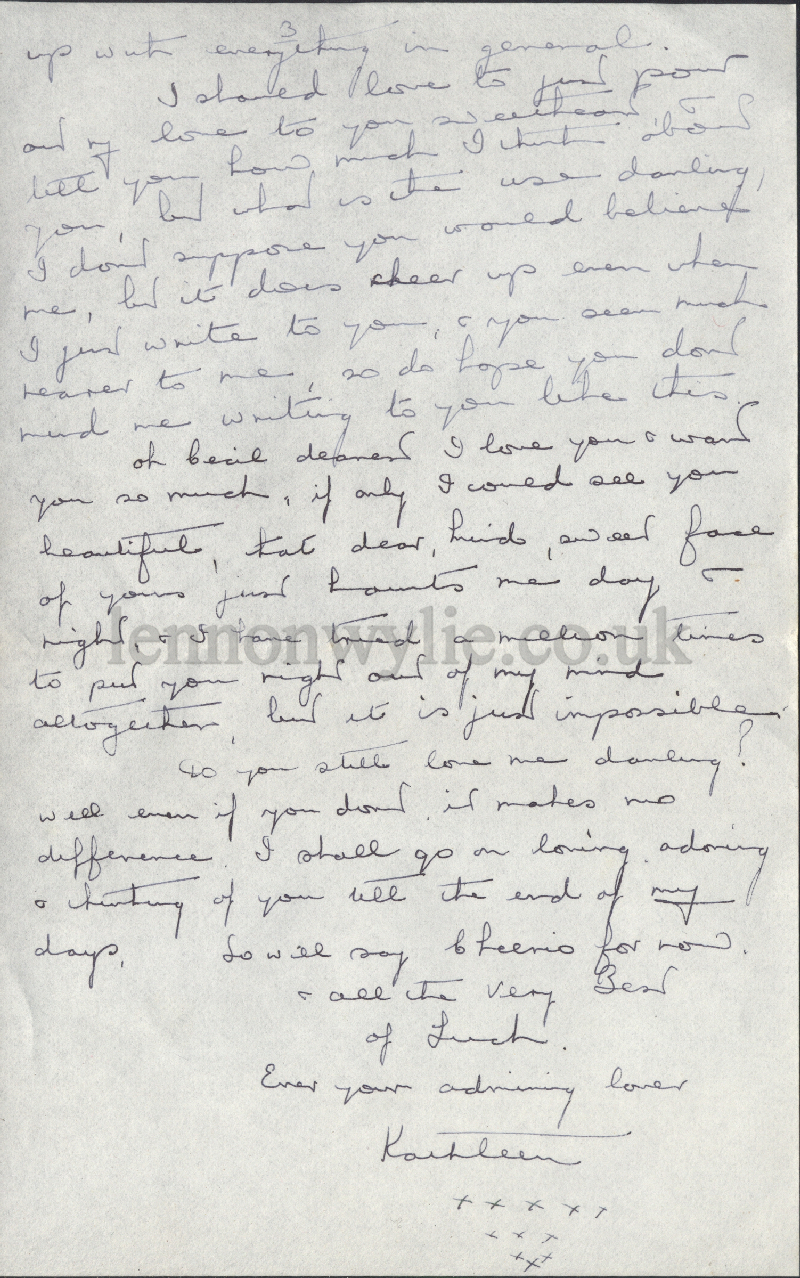 3
up with everything in general.
I should love to just pour
out my love to you sweetheart &
tell you how much I think about
you, but what is the use darling,
I don't suppose you would believe
me, but it does cheer up even when
I just write to you, & you seem much
nearer to me, so do hope you dont
mind me writing to you like this.
oh Cecil dearest I love you & want
you so much, if only I could see you
beautiful, that dear, kind, sweet face
of yours just haunts me day &
night, & I have tried a million times
to put you right out of my mind
altogether, but it is just impossible.
Do you still love me darling?
well even if you dont it makes no
difference I shall go on loving adoring
& thinking of you till the end of my
days. So will say Cheerio for now.
& all the Very Best
of Luck.
Ever your admiring lover
Kathleen
x x x x x
x x x
x x x
lennonwylie.co.uk